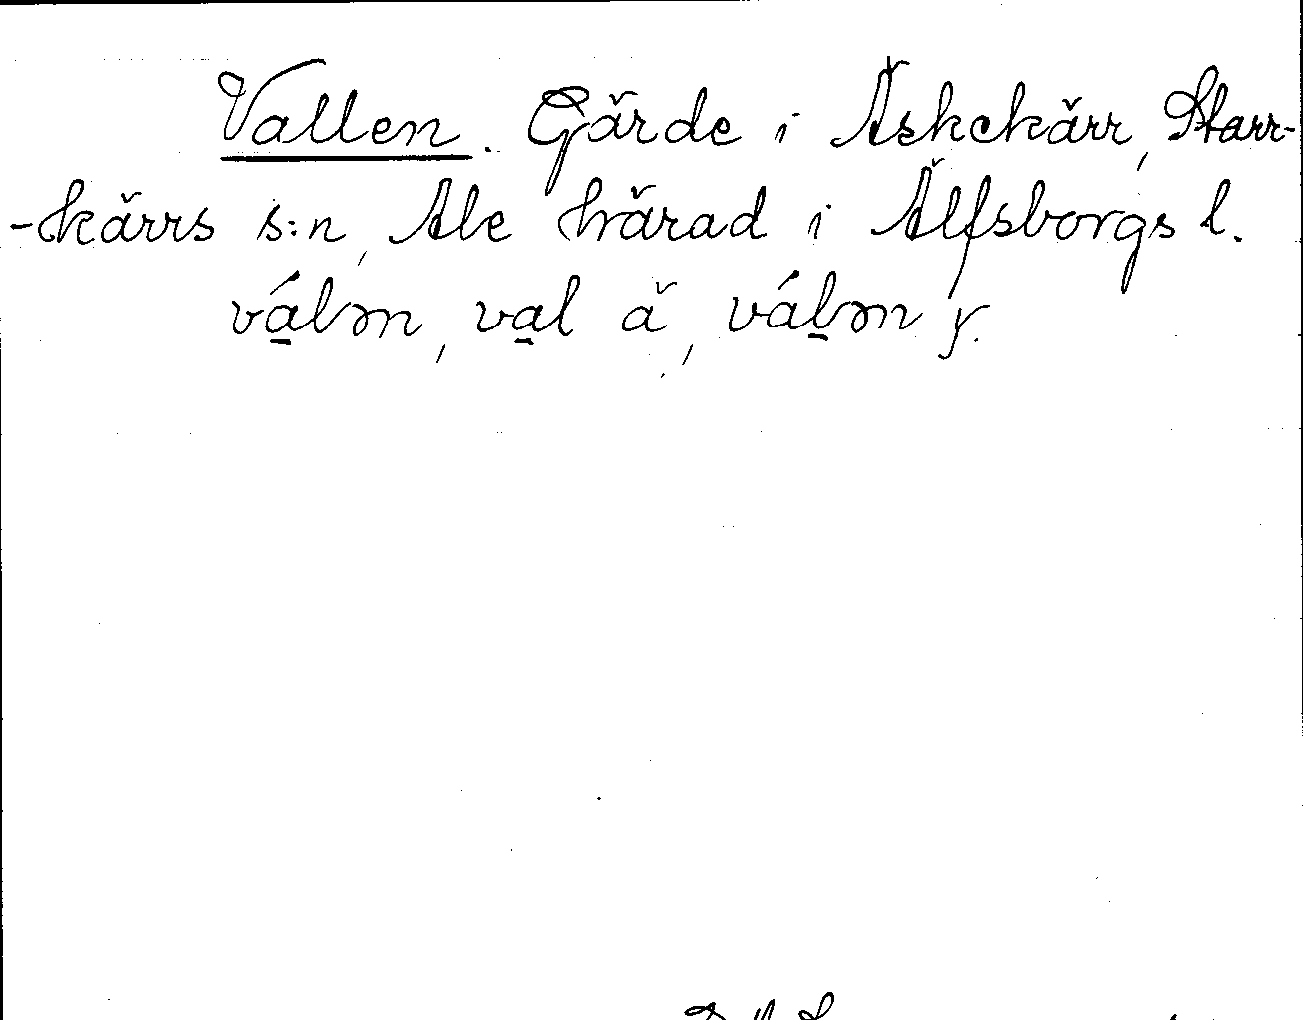 Vallen. Gärde i Äskekärr, Starr-
-kärrs s:n, Ale härad i Älfsborgs l.
vál̠ən, va̠l ä, vál̠ən y.